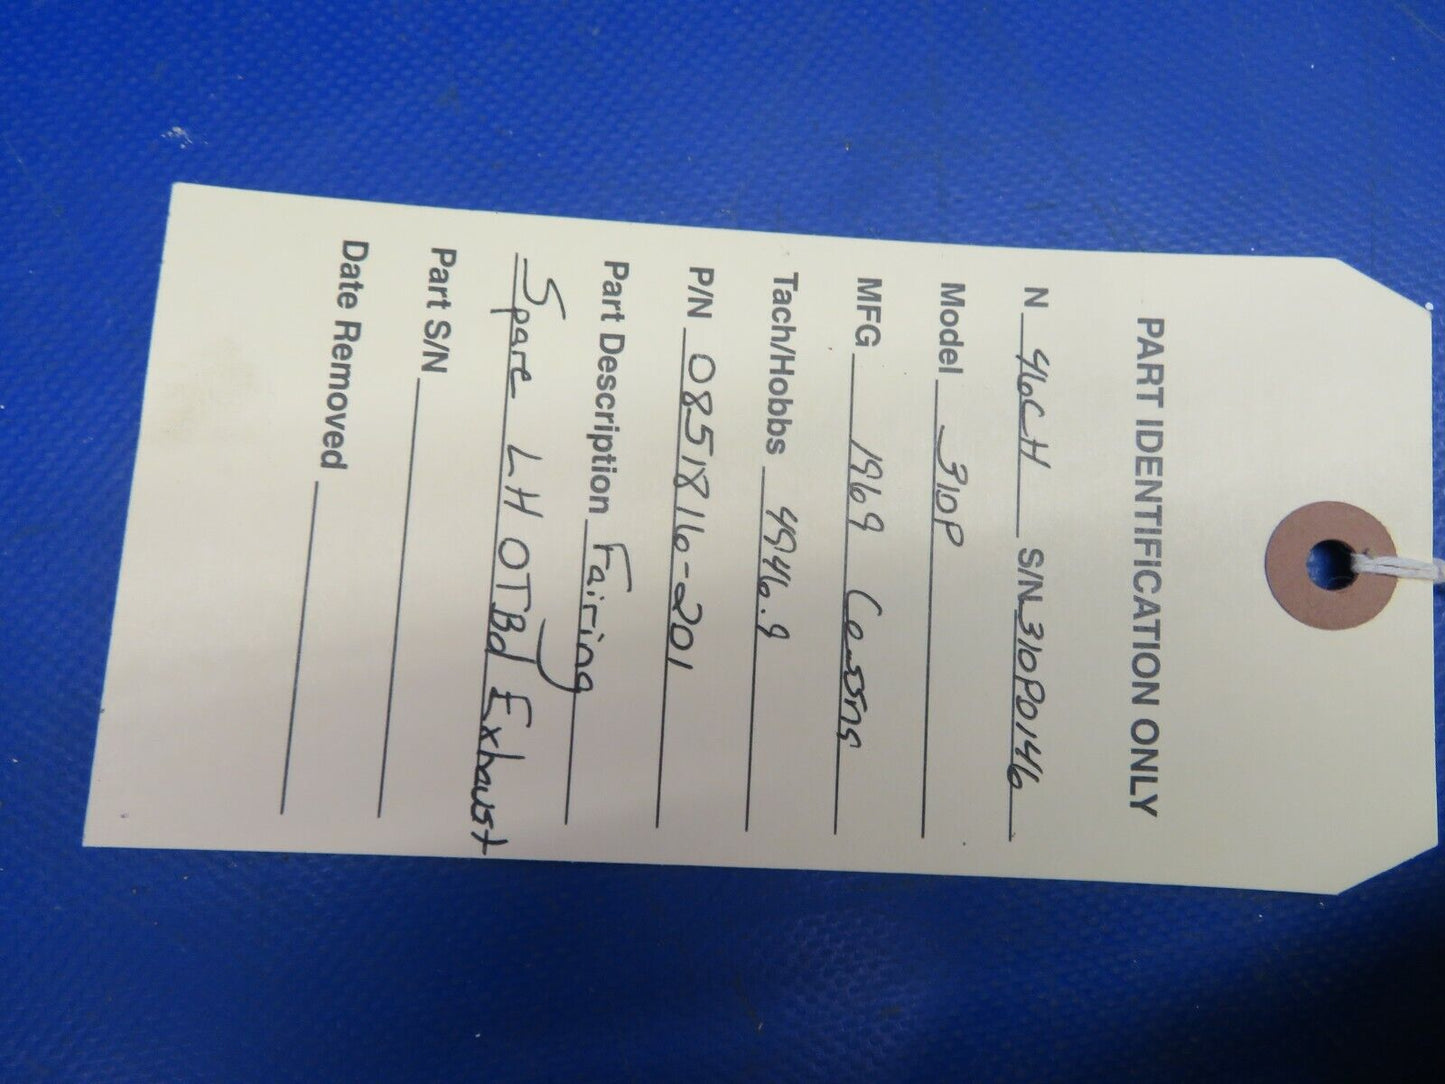 PART IDENTIFICATION ONLY
N 46CH S/N 310P0146
Model 310P
MFG 1969 Cessna
Tach/Hobbs 4946.9
P/N 0851816-201
Part Description Fairing
Spare LH OTBd Exhaust
Part S/N
Date Removed